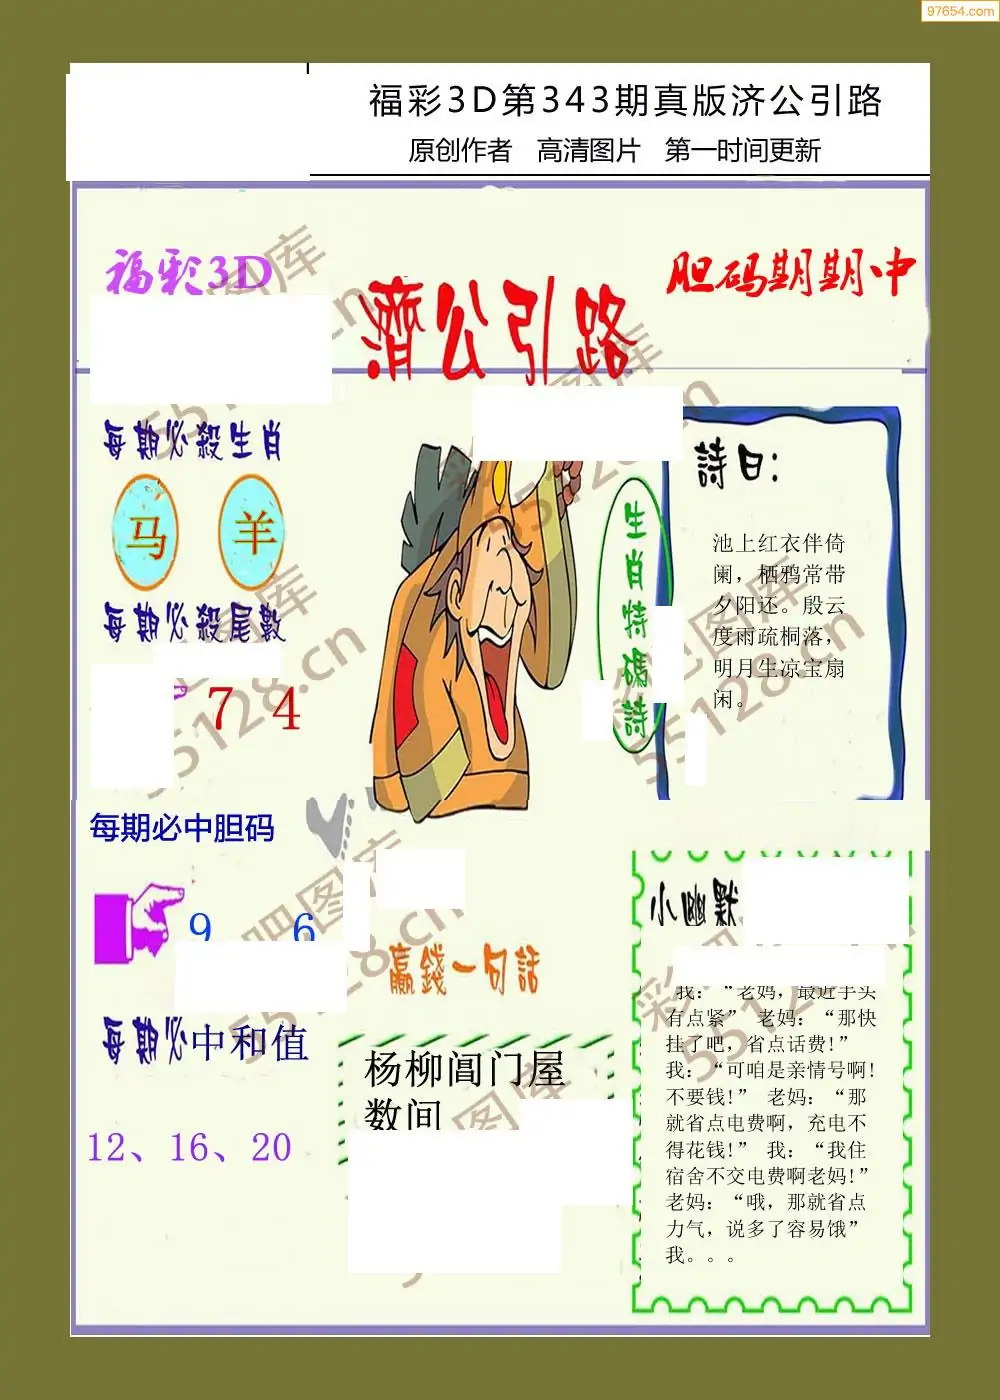 97654.com
福彩3D第343期真版济公引路
原创作者 高清图片 第一时间更新
福彩3D
胆码期期中
濟公引路
每期必殺生肖
马 羊
每期必殺尾數
7 4
生肖特碼詩
詩曰：
池上红衣伴倚
阑，栖鸦常带
夕阳还。殷云
度雨疏桐落，
明月生凉宝扇
闲。
每期必中胆码
9 6
每期必中和值
12、16、20
贏錢一句話
杨柳闾门屋
数间
小幽默
我：“老妈，最近手头
有点紧” 老妈：“那快
挂了吧，省点话费!”
我：“可咱是亲情号啊!
不要钱!” 老妈：“那
就省点电费啊，充电不
得花钱!” 我：“我住
宿舍不交电费啊老妈!”
老妈：“哦，那就省点
力气，说多了容易饿”
我。。。
彩吧图库
55128.cn